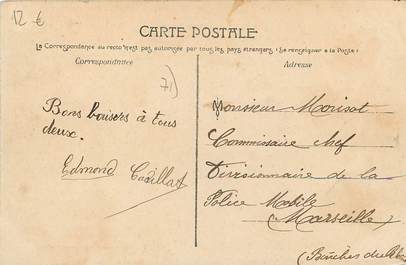 12 €
CARTE POSTALE
La Correspondance au recto n'est pas autorisée par tous les pays étrangers (Se renseigner à la Poste)
Correspondance
Adresse
71)
Bons baisers à tous
deux.
Edmond Cadillat
Monsieur Morisot
Commissaire chef
Divisionnaire de la
Police Mobile
Marseille
(Bouches du Rh